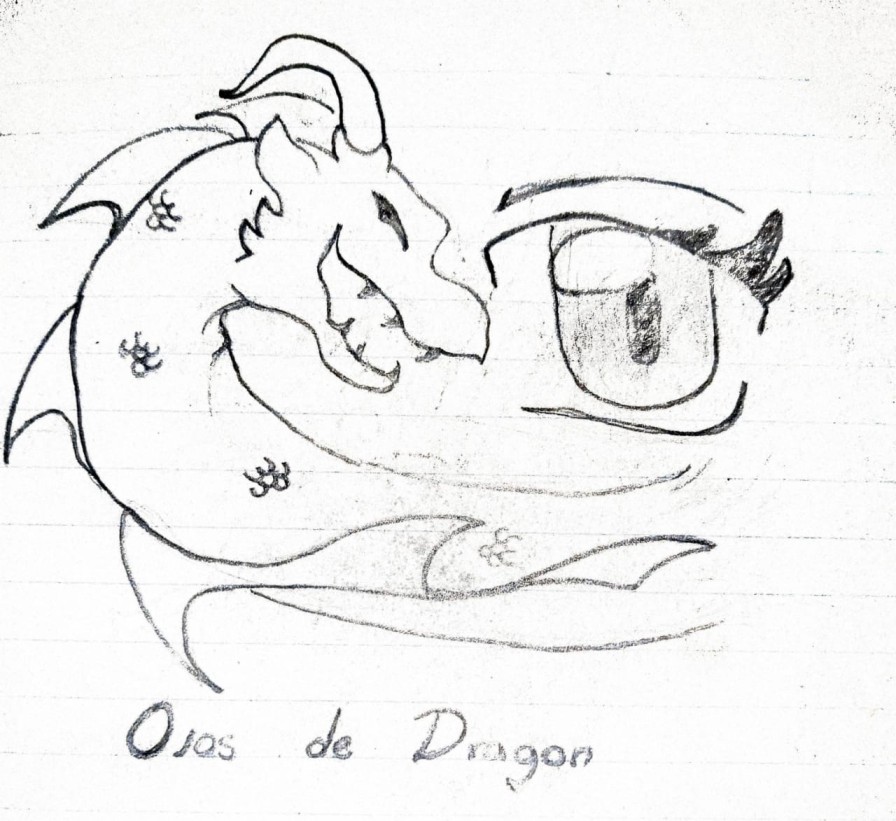 Ojos de Dragon